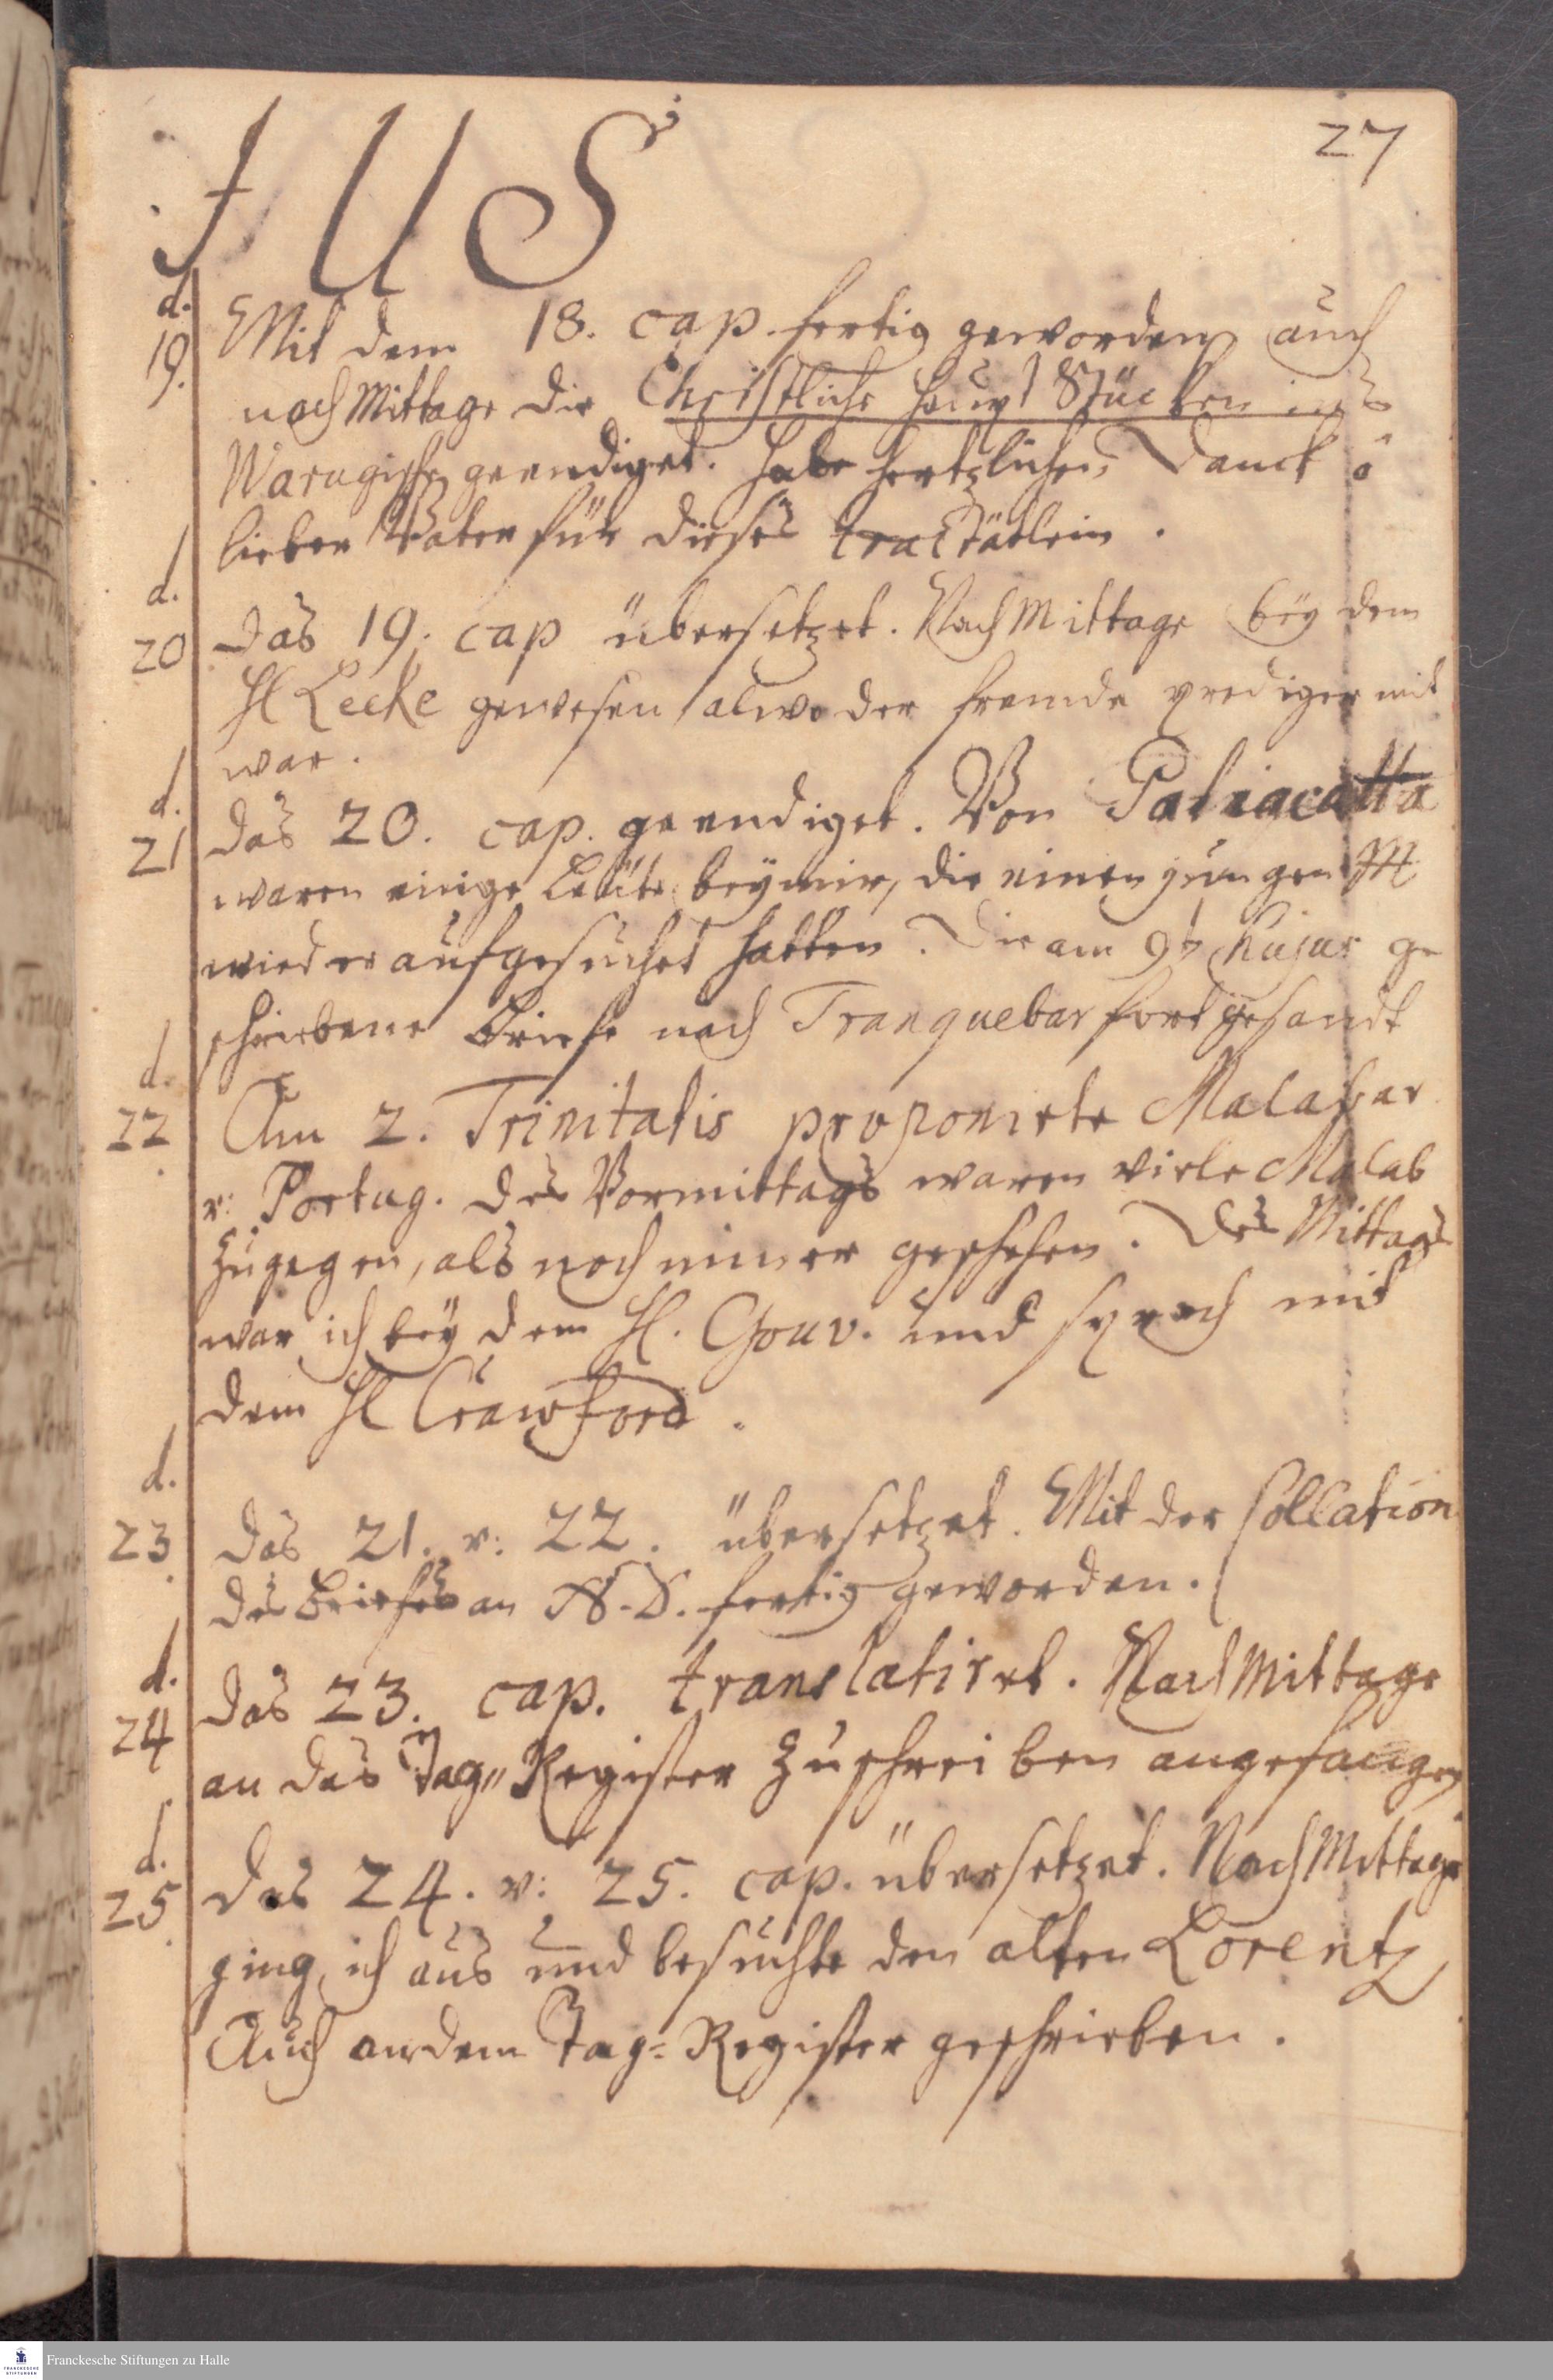 27
I U S
d.
19. Mit dem 18. cap. fertig geworden, auch
nachMittage die Christliche Haupt Stücken ins
Warugische geendiget. Habe hertzlichen Danck ô
lieber Vater für dieses tractätlein.
d.
20 Das 19. cap übersetzet. NachMittage bey dem
H Lecke gewesen, alwo der fremde prediger mit
war.
d.
21 Das 20. cap. geendiget. Von Paliacatta
waren einige Leüte bey mir, die einen jungen M
wieder aufgesuchet hatten. Die am 9t hujus ge
schriebene Briefe nach Tranquebar fortgesandt
d.
22. Am 2. Trinitatis proponirte Malabar
v: Portug. des Vormittags waren viele Malab
zugegen, als noch nimer geschehen. Des Mittags
war ich bey dem H. Gouv. und sprach mit
dem H Crawford.
d.
23. Das 21. v: 22. übersetzet. Mit der Collation
des Briefes an N. S. fertig geworden.
d.
24 Das 23. cap. translatiret. NachMittage
an das Tag-Register zu schreiben angefangen
d.
25. Das 24. v: 25. cap. übersetzet. NachMittage
ging ich aus und besuchte den alten Lorentz
Auch an dem Tag-Register geschrieben.
Franckesche Stiftungen zu Halle
FRANCKESCHE STIFTUNGEN